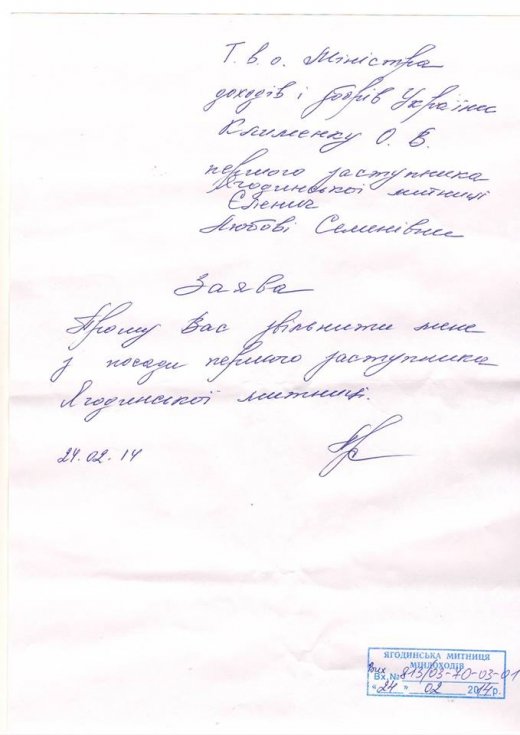 Т.в.о. Міністра
доходів і зборів України
Клименку О. В.
першого заступника
Ягодинської митниці
Єпенич
Любові Семенівни
Заява
Прошу Вас звільнити мене
з посади першого заступника
Ягодинської митниці.
24.02.14
ЯГОДИНСЬКА МИТНИЦЯ
МІНДОХОДІВ
Вих
Вх.№ 813/03-70-03-01
"24" 02 2014 р.